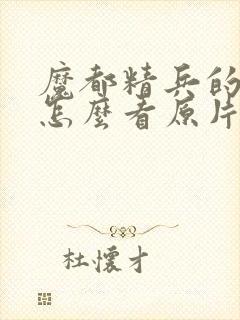 魔都精兵的
怎麼看原片
杜懷才